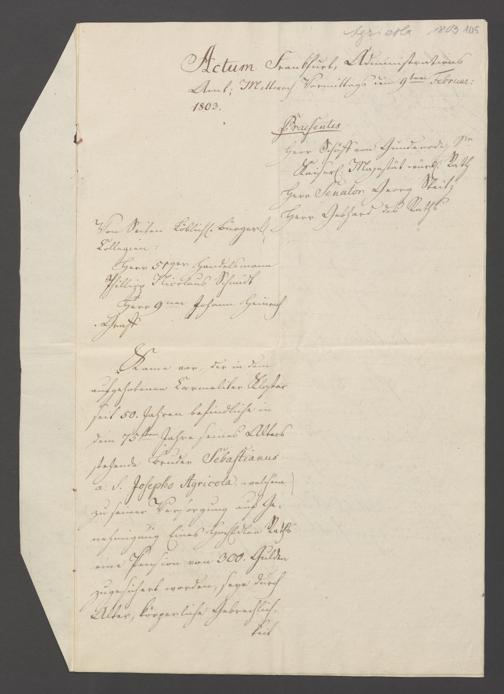 Agricola 1803 105
Actum Frankfurt, Administrations
Amt, Mittwoch Vormittags den 9ten Februar:
1803.
Praesentes
Herr Schöff von Günderode, Sr
Kaiserl. Majestät würkl. Rath
Herr Senator Georg Steitz
Herr Gebhard des Raths
Von Seiten Löblich. Bürgerl.
Collegien:
Herr 51ger Handelsmann
Philipp Nicolaus Schmidt
Herr 9ner Johann Heinrich
Kame vor, der in dem
aufgehobenen Carmeliter Kloster
seit 50. Jahren befindliche in
dem 75sten Jahre seines Alters
stehende Bruder Sebastianus
a S. Josepho Agricola, welchem
zu seiner Versorgung auf Ge-
nehmigung Eines Hochedlen Raths
eine Pension von 300. Gulden
zugesichert worden, seye durch
Alter, körperliche Gebrechlich-
keit